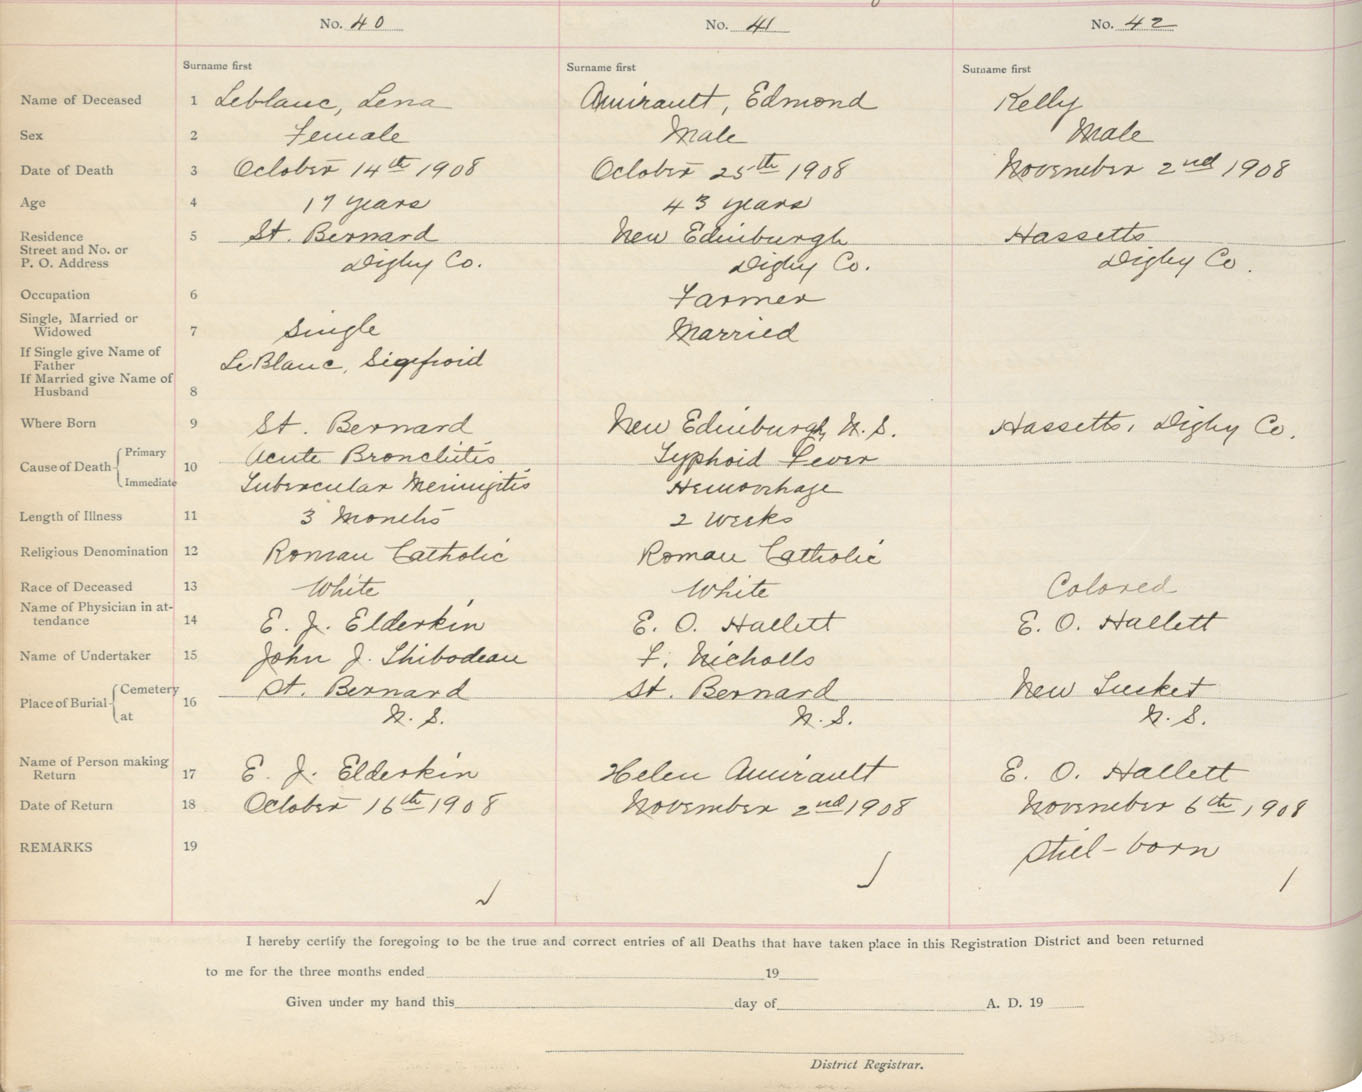 No. 40 No. 41 No. 42
Surname first Surname first Surname first
Name of Deceased 1 Leblanc, Lena Amirault, Edmond Kelly
Sex 2 Female Male Male
Date of Death 3 October 14th 1908 October 25th 1908 November 2nd 1908
Age 4 17 years 43 years
Residence 5 St. Bernard New Edinburgh Hassetts
Street and No. or
P. O. Address Digby Co. Digby Co. Digby Co.
Occupation 6 Farmer
Single, Married or
Widowed 7 Single Married
If Single give Name of
Father LeBlanc, Sigefroid
If Married give Name of
Husband 8
Where Born 9 St. Bernard New Edinburgh, N.S. Hassetts, Digby Co.
Primary Acute Bronchitis Typhoid Fever
Cause of Death 10
Immediate Tubercular Meningitis Hemorrhage
Length of Illness 11 3 Months 2 weeks
Religious Denomination 12 Roman Catholic Roman Catholic
Race of Deceased 13 White White Colored
Name of Physician in at-
tendance 14 E. J. Elderkin E. O. Hallett E. O. Hallett
Name of Undertaker 15 John J. Thibodeau F. Nicholls
Cemetery St. Bernard St. Bernard New Tusket
Place of Burial 16
at N.S. N.S. N.S.
Name of Person making
Return 17 E. J. Elderkin Helen Amirault E. O. Hallett
Date of Return 18 October 16th 1908 November 2nd 1908 November 6th, 1908
REMARKS 19 Still-born
I hereby certify the foregoing to be the true and correct entries of all Deaths that have taken place in this Registration District and been returned
to me for the three months ended 19
Given under my hand this day of A. D. 19
District Registrar.